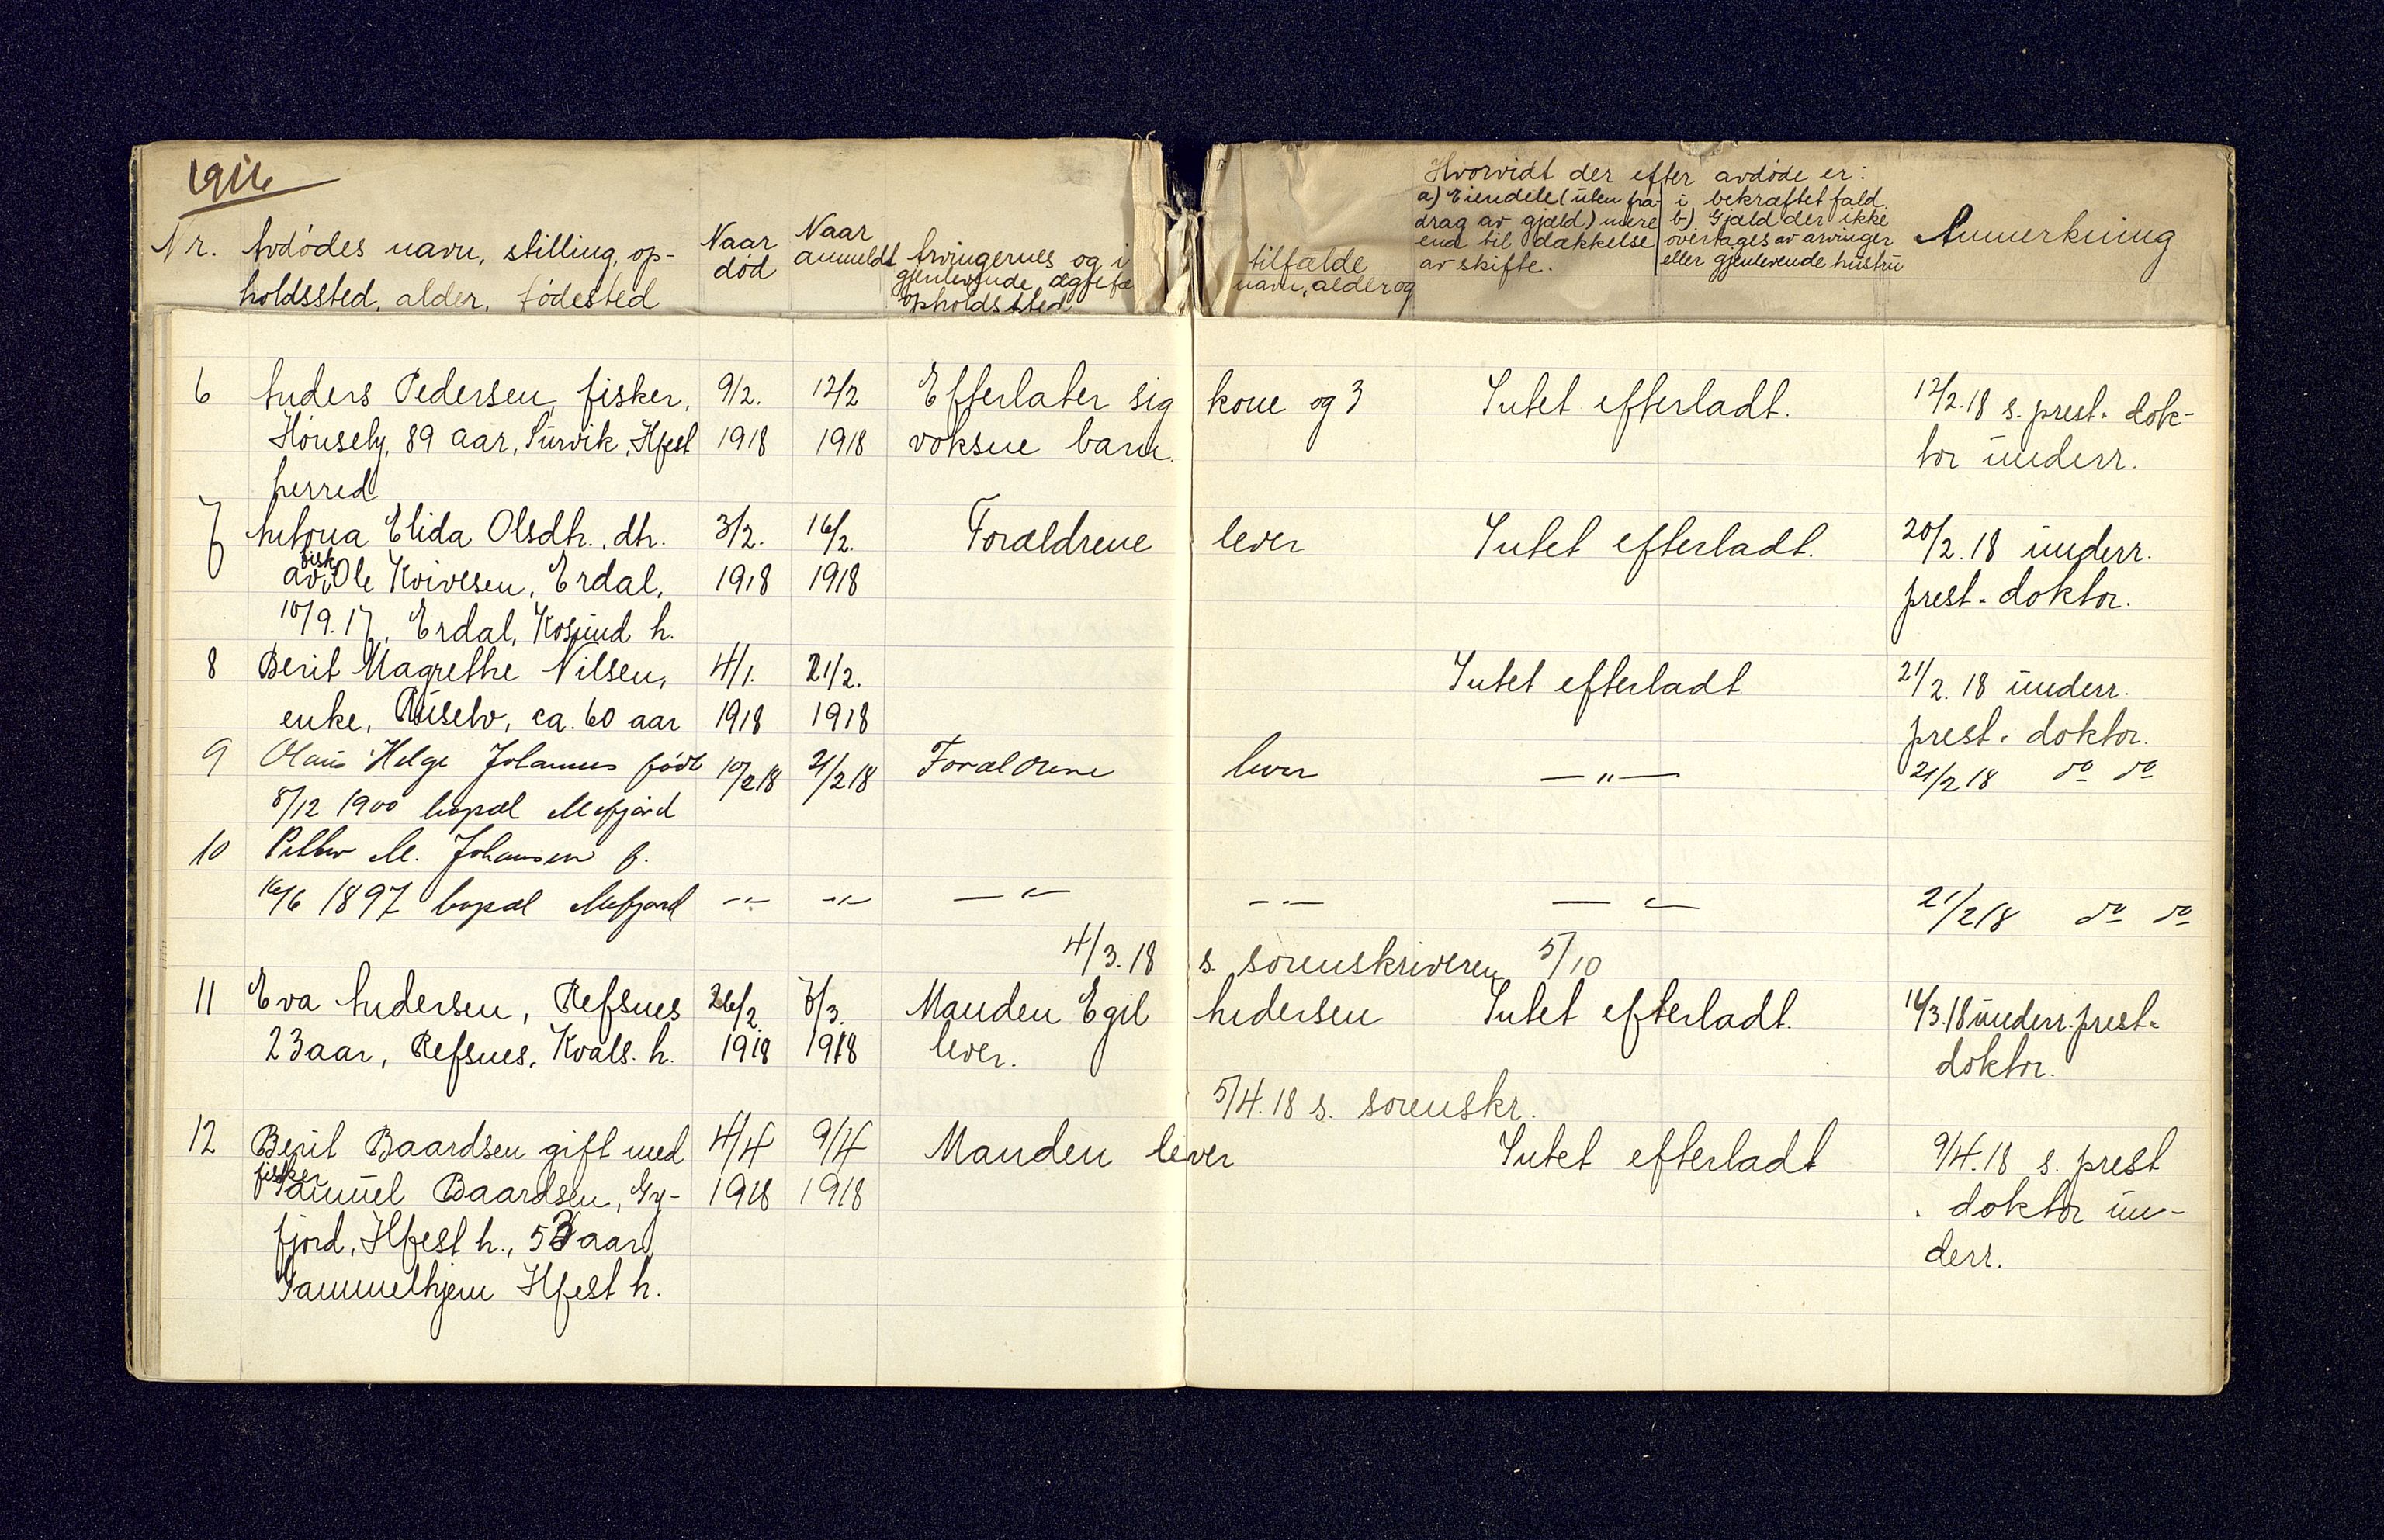 1916
Nr. Avdödes navn, stilling, op-
holdssted, alder, födested
Naar
död
Naar
anmeldt
Arvingernes og i
gjenlevende ægtefæ
opholdssted
tilfælde
navn, alder og
Hvorvidt der efter avdöde er:
a) Eiendele (uten fra-
drag av gjæld) mere
end til dækkelse
av skifte.
i bekræftet fald.
b) Gjæld der ikke
overtages av arvinger
eller gjenlevende hustru
Anmerkning
6 Anders Pedersen, fisker, 9/2. 12/2 Efterlater sig kone og 3 Intet efterladt. 12/2.18 s. prest. dok-
89 aar, Hfest 1918 1918 voksne barn. tor underr.
herred
7 Antona Elida Olsdh., dh. 3/2. 16/2. Forældrene lever Intet efterladt. 20/2.18 underr.
fisk.
av Ole Kvivesen, Erdal, 1918 1918 prest. doktor.
10/9.17, Erdal, h.
8 Berit Magrethe Nilsen, 4/1. 21/2. Intet efterladt 21/2.18 underr.
enke, Ruselv, ca. 60 aar 1918 1918 prest. doktor.
9 Olaus Helge Johannes födt 10/2 18 21/2 18 Forældrene lever — " — 21/2 18 do do
8/12 1900 bopæl Mefjord
10 Petter M. Johansen f.
16/6 1897 bopæl Mefjord -"- -"- — " - -"- — " — 21/2 18 do do
4/3.18 s. sorenskriveren 5/10
11 Eva Andersen, Refsnes 26/2. 7/3. Manden Egil Andersen Intet efterladt. 16/3.18 underr. prest.
23 aar, Refsnes, Kvals. h. 1918 1918 lever. doktor.
5/4.18 s. sorenskr.
12 Berit Baardsen gift med 4/4 9/4 Manden lever Intet efterladt 9/4.18 s. prest
fisker
Samuel Baardsen, Gy- 1918 1918 . doktor un-
fjord, Hfest h., 53 aar, derr.
Gammelhjem Hfest h.